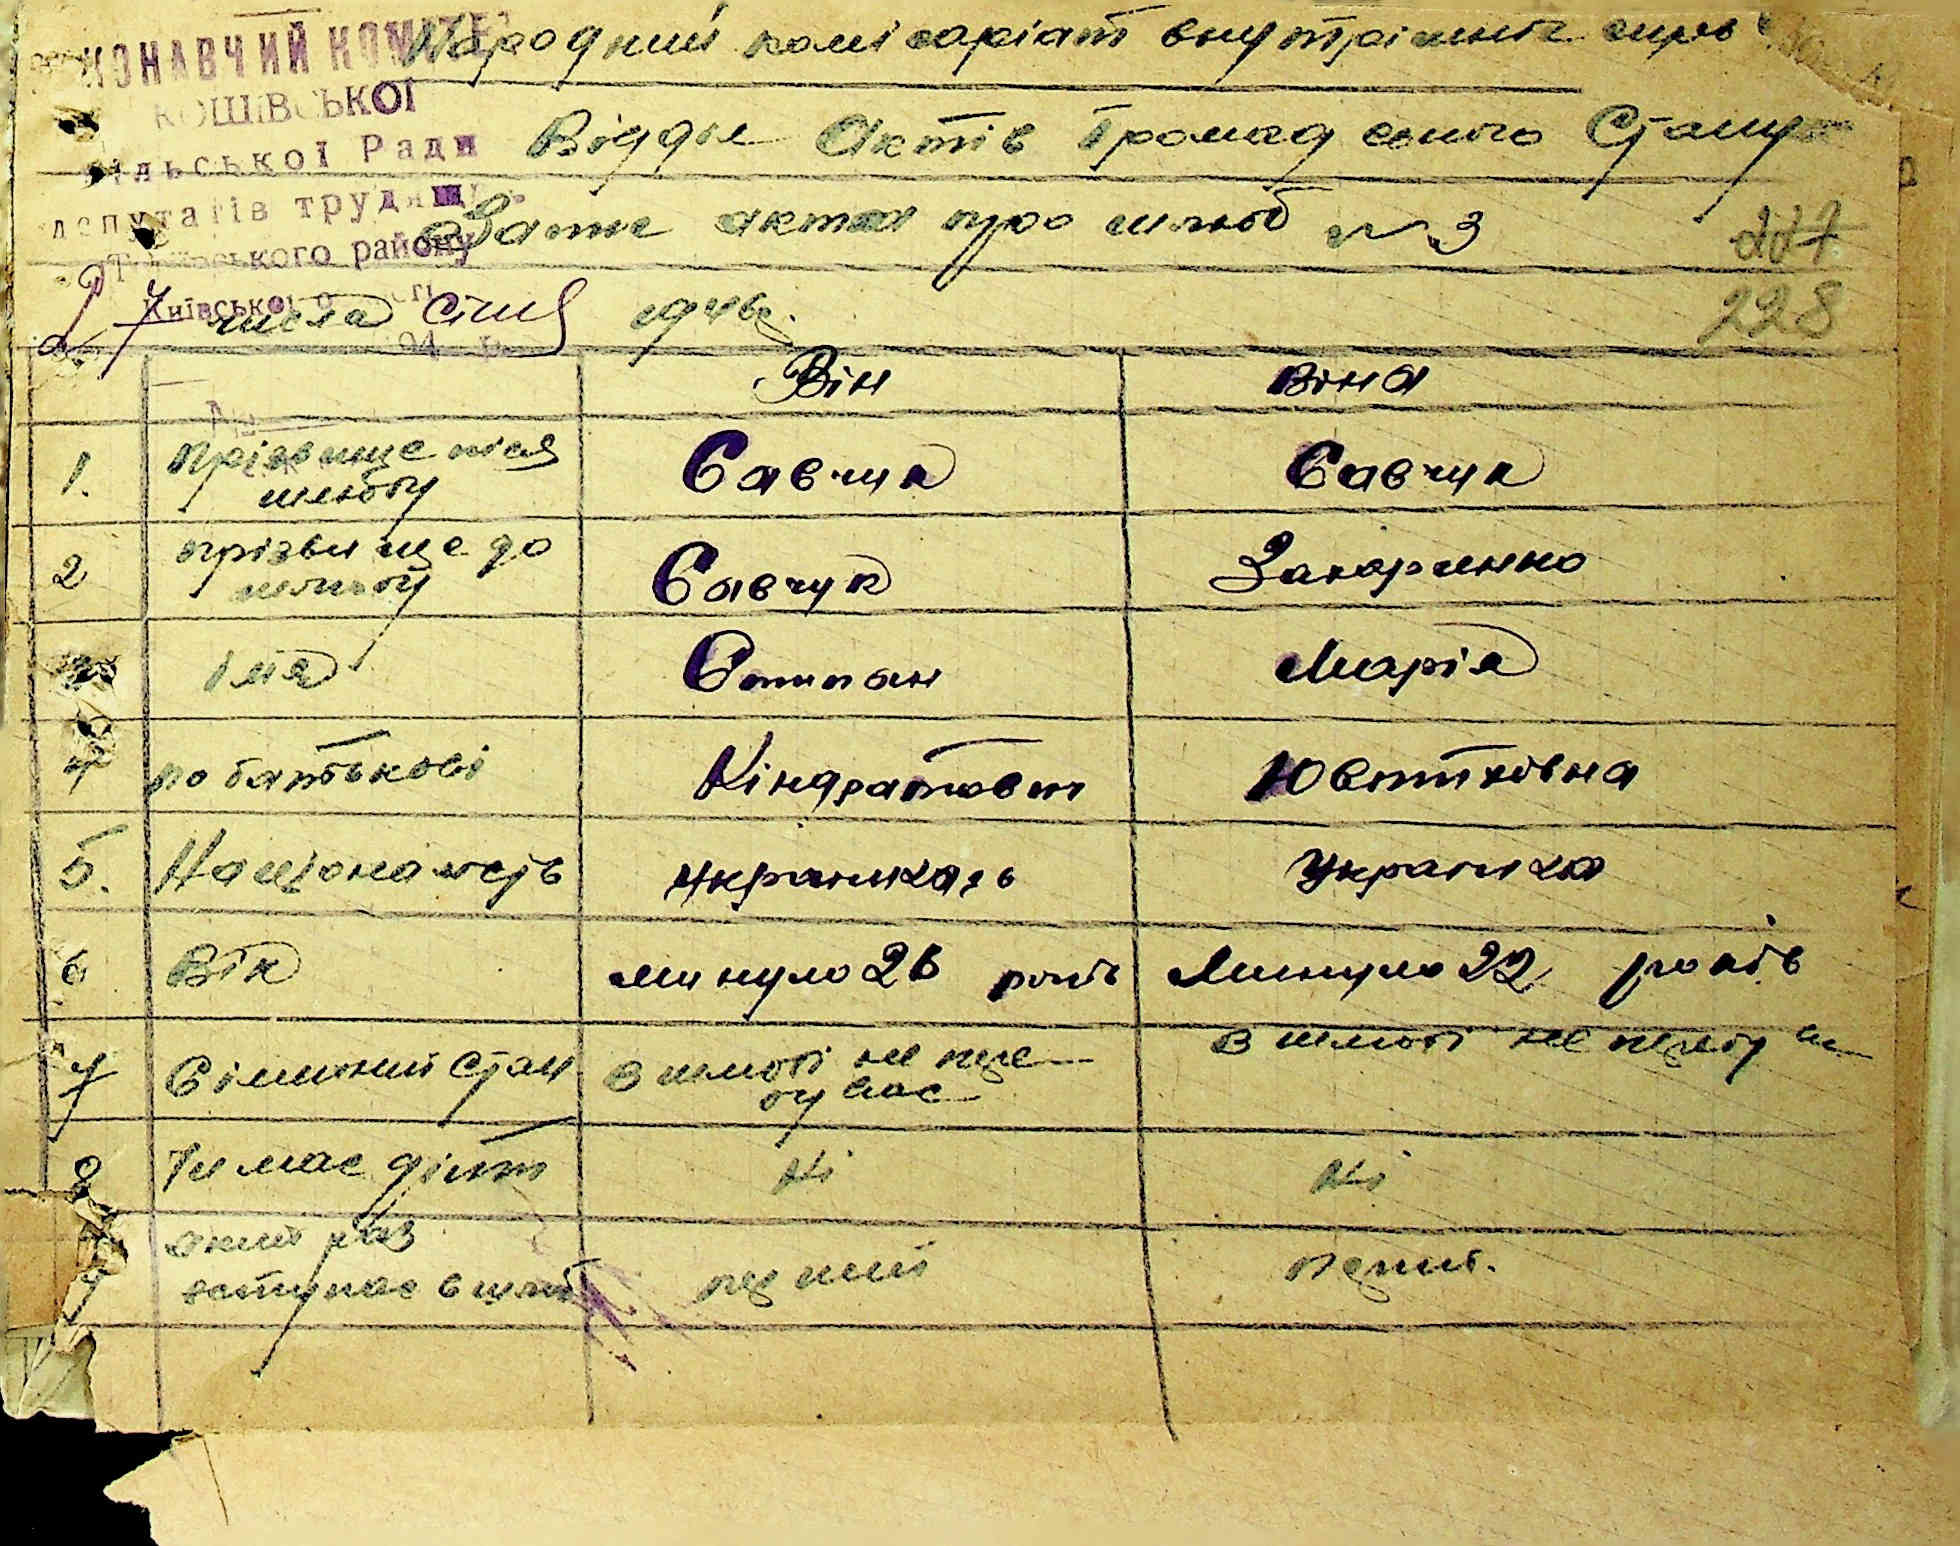 КОНАВЧИЙ КОМІТЕТ
КОШІВСЬКОЇ
сільської Ради
депутатів трудящ
ського району
Київської
Народний комісаріат внутрішніх справ
Відділ Актів Громадського Стану
Запис акта про шлюб № 3
227
228
27 числа січня 1946 р.
Він Віна
1. прізвище після шлюбу Савчук Савчук
2 прізвище до шлюбу Савчук Захарченко
Імя Степан Марія
4 по батькові Кіндратович Ювтихівна
5. Національність українець Украінка
6 Вік минуло 26 років Минуло 22 років
7 Сімейний стан в шлюбі не пере- в шлюбі не перебу
бував
8 Чи має діти Ні Ні
9 який раз
вступає в шлюб перший перший